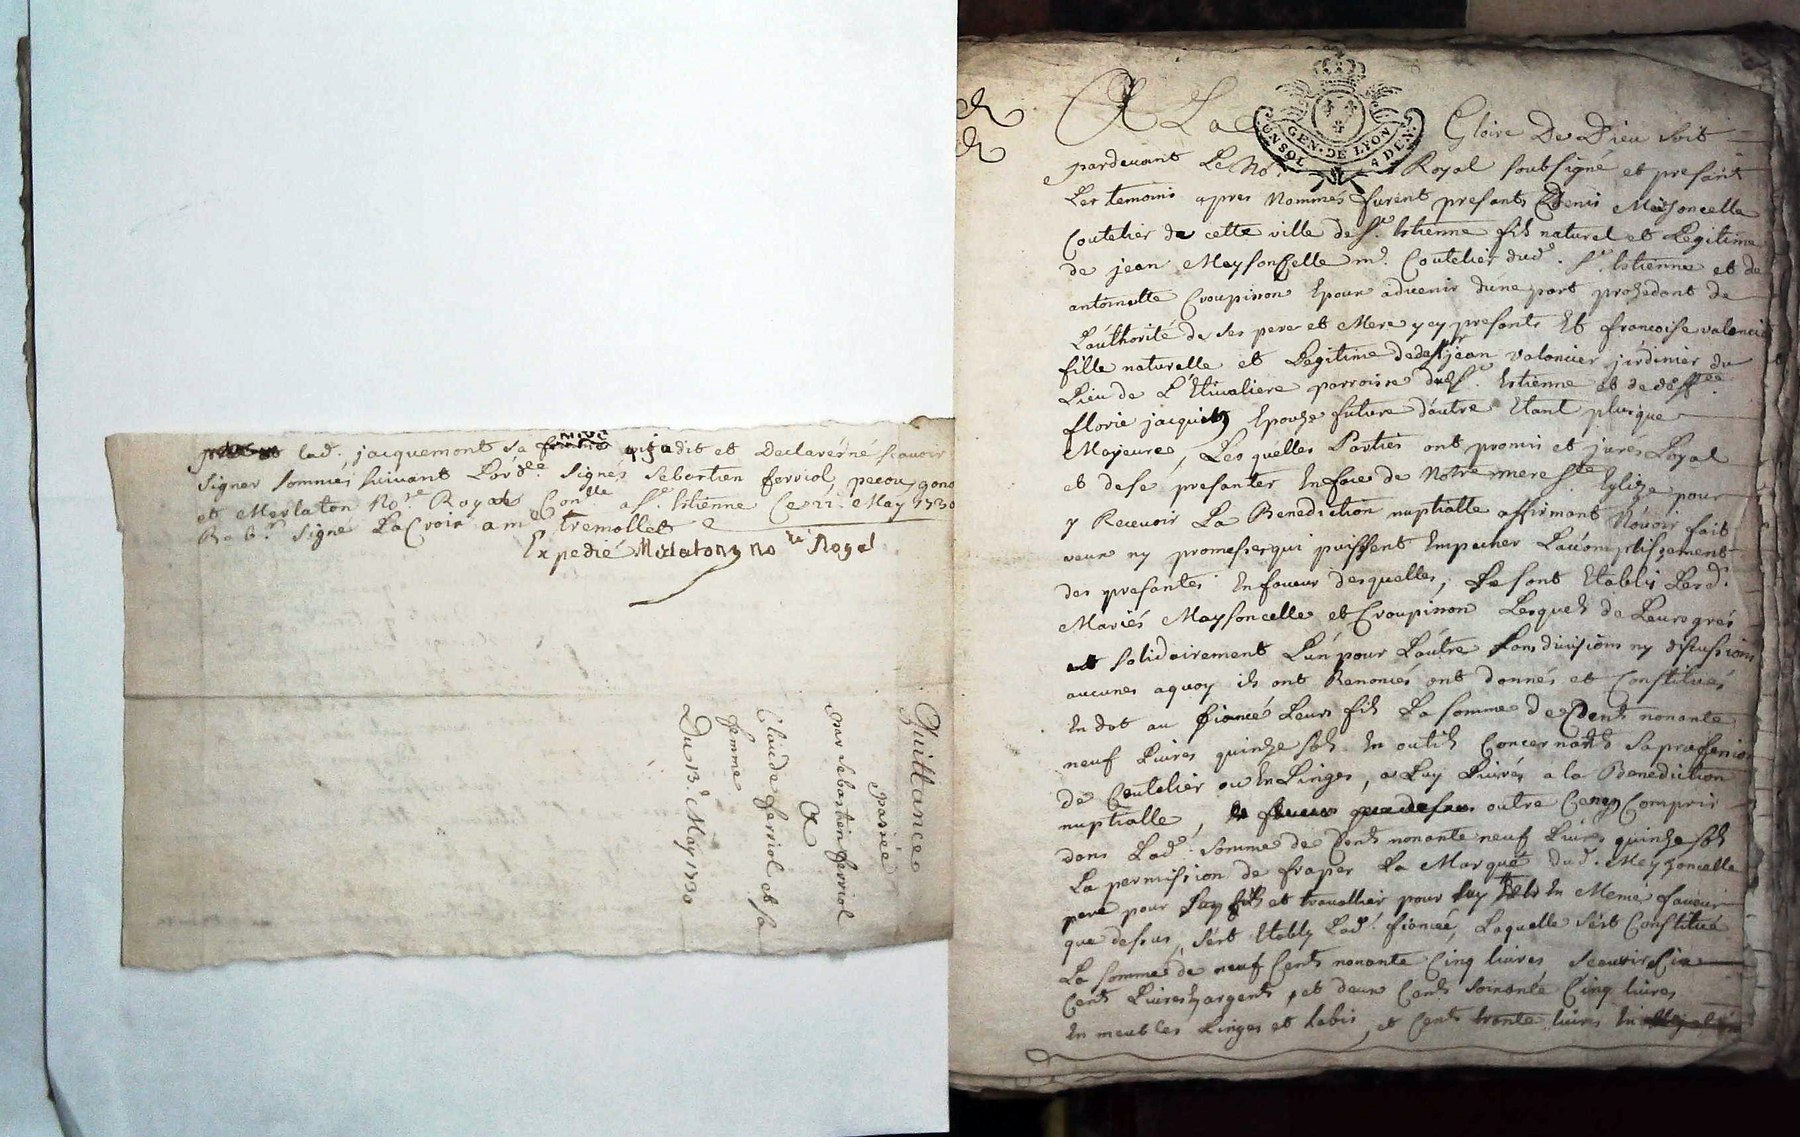 lad. jacquemont sa qui a dit et Declaré né scavoir
signer sommés suivant Lord.ce signés Sebastien ferriol, pecoug gono
et Merlaton No.re Royal Con.lle a S.t Estienne Ce 22. May 1730
Signé LaCroix a m tremollet
Expedié Merlaton no.re Royal
Quittance
passée
par sebastien ferriol
A
Claude ferriol et sa
femme
Du 13.e May 1730
A La Gloire De Dieu soit
GEN. DE LYON
UN SOL 4 DEN.
pardevant Le No.re Royal soubsigné et presant
Les temoins apres Nommés furent presants Denis Meysoncelle
Coutelier de cette ville de S.t Estienne fils naturel et Legitime
de jean Meysoncelle m.e Coutelier dud. S.t Estienne et de
antoinette Croupisson Epoux advenir dúne part prozedant de
Láuthorité de ses pere et Mere y cy presants Et francoise valencier
fille naturelle et Legitime de deff.t jean valencier jardinier du
Lieu de L'Etivaliere parroisse dud S.t Estienne et de deff.te
florie jacquin Epouze future dáutre Etant plusque
Majeure, Lesquélles Parties ont promis et jurés Loyal
et dese presanter En face de Notre mere S.te Eglize pour
y Recevoir La Benediction nuptialle affirmant Návoir fait
veux ny promesses qui puissent Empecher Láccomplissement
des presantes En faveur desquelles, se sont Etablis Lesd.
Mariés Maysoncelle et Croupisson Lesquels de Leurs grés
et solidairement Lún pour Láutre sans division ny discussion
aucunes a quoy ils ont Renoncés ont donnés et Constitués
En dot au fiancé Leur fils La somme de Cents nonante
neuf Livres quinze sols En outils Concernants sa profession
de Coutelier ou En Linges, a Luy Livrés a la Benediction
nuptialle, outre Ce non Compris
dans Lad. somme de Cents nonante neuf Livres quinze sols
La permission de fraper La Marque dud. Meyzoncelle
pere pour et travallier pour luy En Meme faveur
que dessus, sést Etably Lad. fiancée, Laquelle sést Constitué
La somme de neuf Cents nonante Cinq livres scavoir Six
Cents Livres En argent, et deux Cents soixante Cinq livres
En meubles Linges et habis, et Cents trante livres En